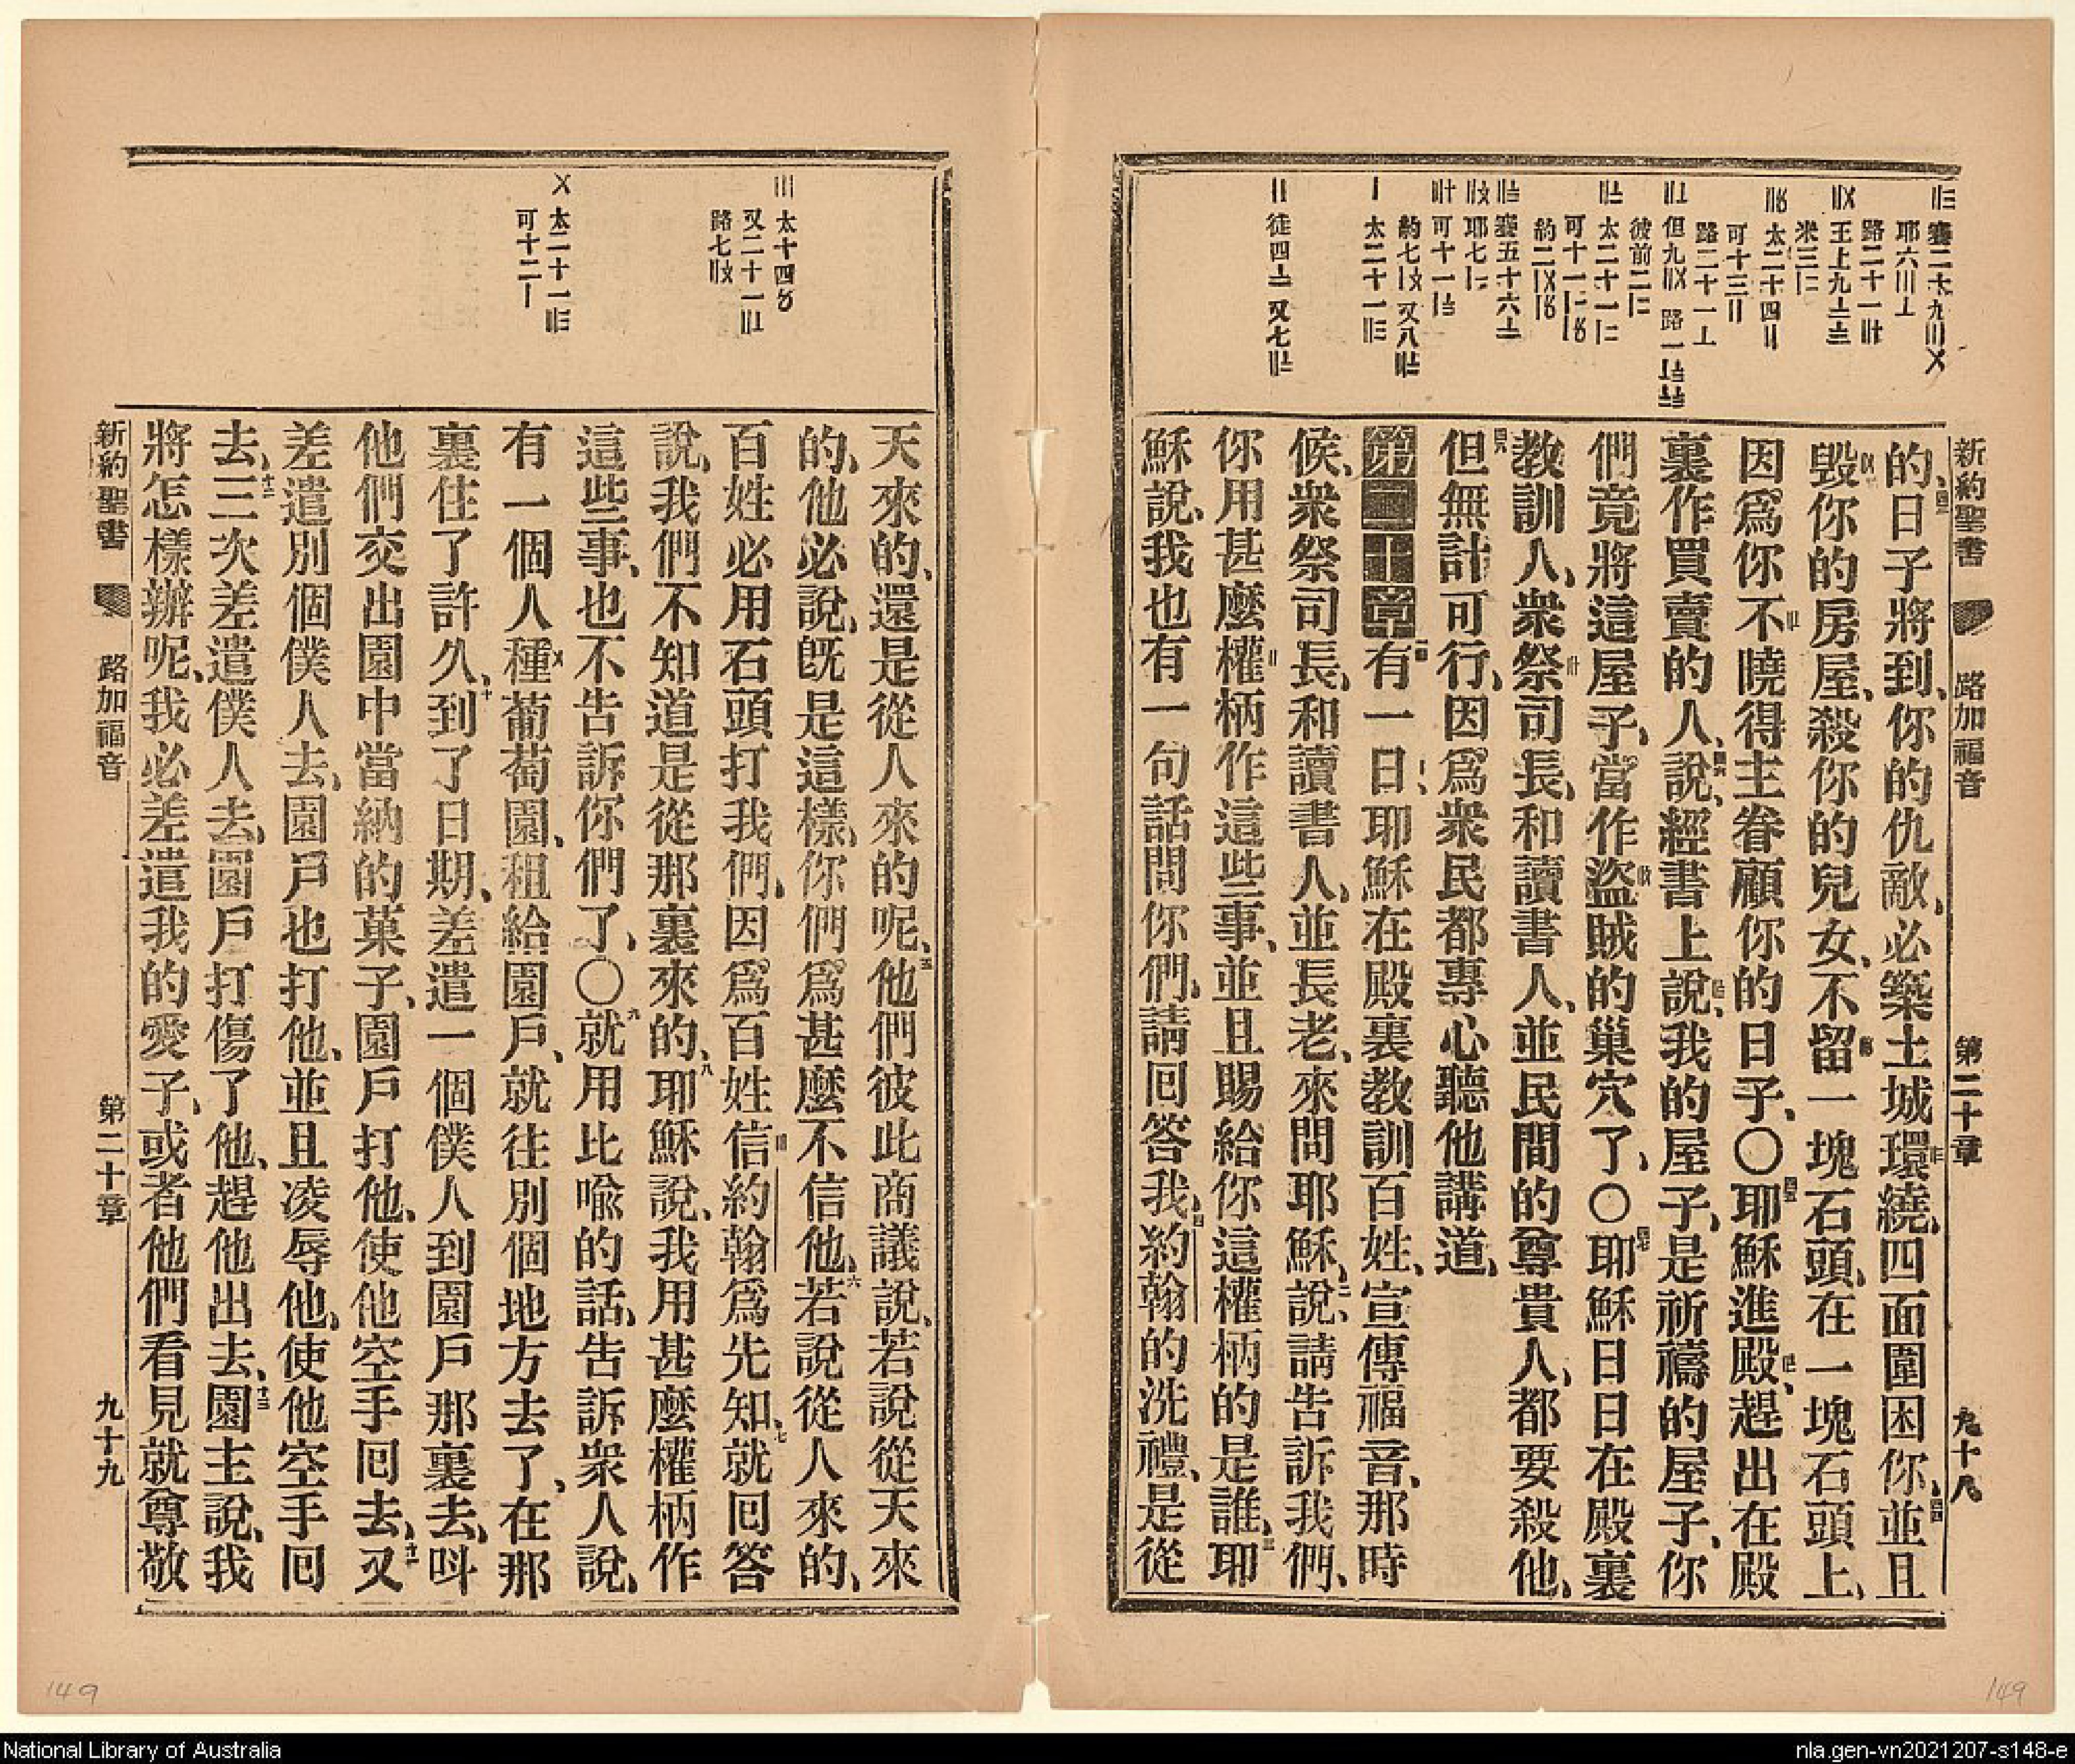 新約聖書 路加福音 第二十章 九十八
的、日子將到、你的仇敵、必築土城環繞、四面圍困你、並且
毀你的房屋、殺你的兒女、不留一塊石頭、在一塊石頭上、
因爲你不曉得主眷顧你的日子、〇耶穌進殿、趕出在殿
裏作買賣的人、說、經書上說、我的屋子、是祈禱的屋子、你
們竟將這屋子、當作盜賊的巢穴了、〇耶穌日日在殿裏
教訓人、衆祭司長、和讀書人、並民間的尊貴人、都要殺他、
但無計可行、因爲衆民都專心聽他講道、
第二十章 有一日、耶穌在殿裏教訓百姓、宣傳福音、那時
候、衆祭司長、和讀書人、並長老、來問耶穌、說、請告訴我們、
你用甚麼權柄作這些事、並且賜給你這權柄的是誰、耶
穌說、我也有一句話問你們、請囘答我、約翰的洗禮、是從
天來的、還是從人來的呢、他們彼此商議說、若說從天來
的、他必說、旣是這樣、你們爲甚麼不信他、若說從人來的、
百姓必用石頭打我們、因爲百姓信約翰爲先知、就囘答
說、我們不知道是從那裏來的、耶穌說、我用甚麼權柄作
這些事、也不告訴你們了、〇就用比喻的話、告訴衆人說、
有一個人種葡萄園、租給園戶、就往別個地方去了、在那
裏住了許久、到了日期、差遣一個僕人到園戶那裏去、呌
他們交出園中當納的菓子、園戶打他、使他空手囘去、又
差遣別個僕人去、園戶也打他、並且凌辱他、使他空手囘
去、三次差遣僕人去、園戶打傷了他、趕他出去、園主說、我
將怎樣辦呢、我必差遣我的愛子、或者他們看見就尊敬
新約聖書 路加福音 第二十章 九十九
149
149
National Library of Australia
nla.gen-vn2021207-s148-e